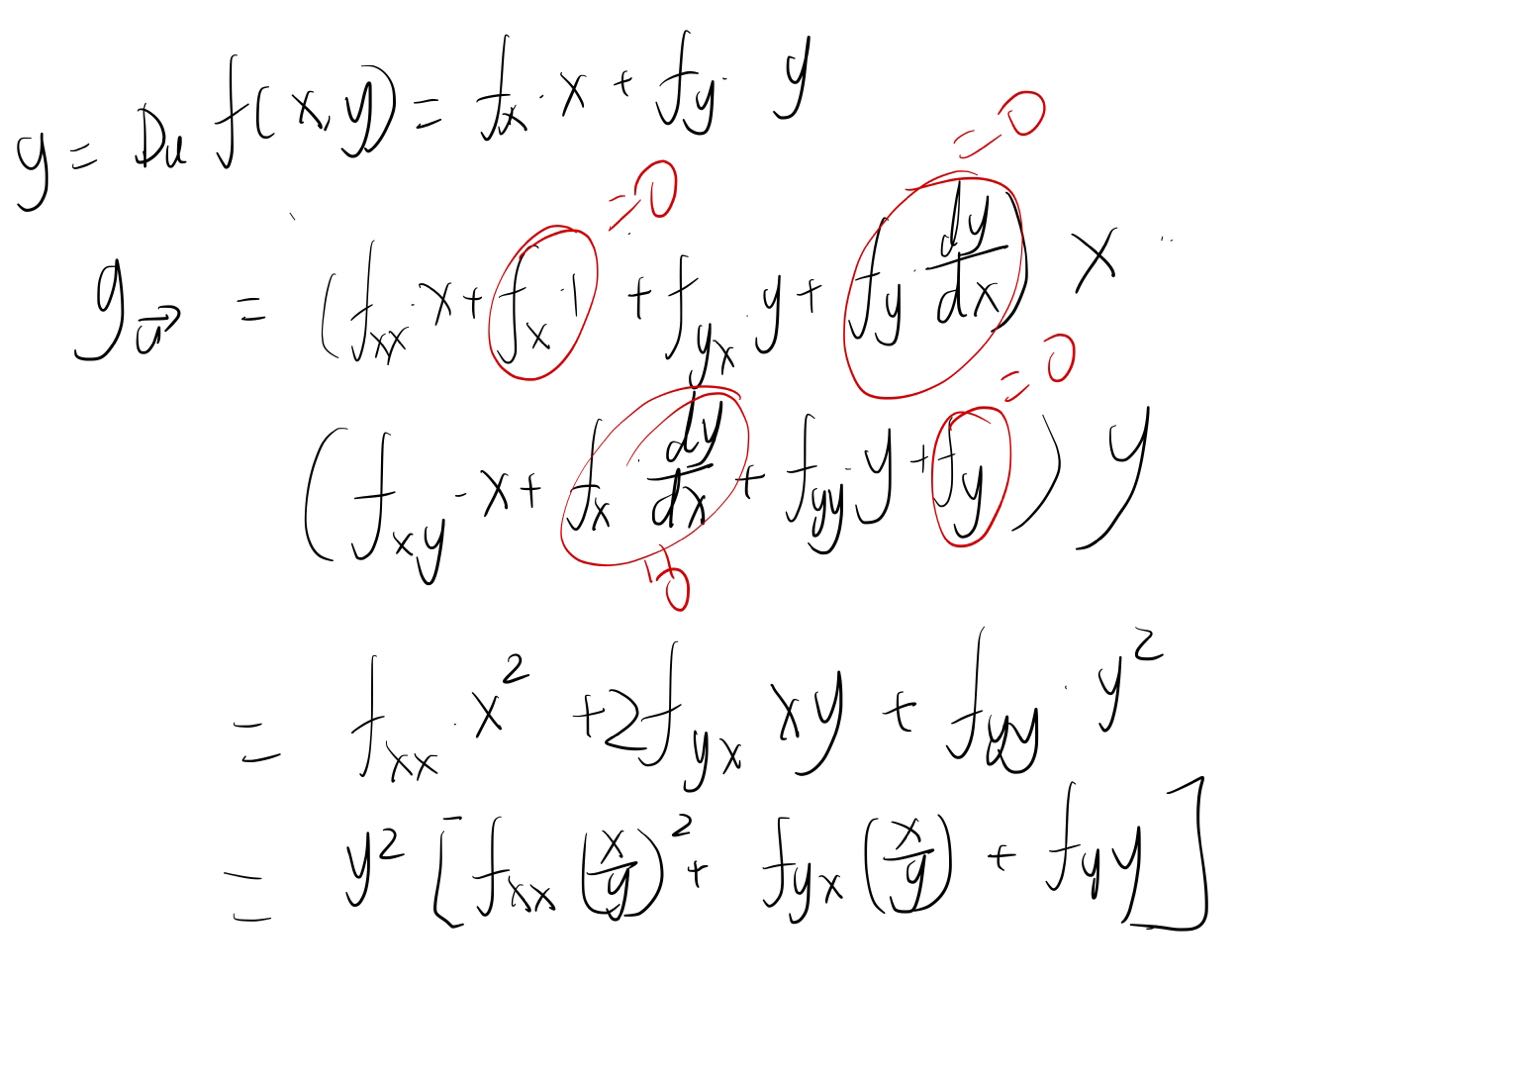 g = Du f(x,y) = fx · x + fy · y
g_u⃗ = (fxx · x + fx · 1 + fyx · y + fy · dy/dx) x
=0
=0
(fxy · x + fx · dy/dx + fyy · y + fy) y
=0
=0
= fxx · x² + 2fyx xy + fyy · y²
= y² [fxx (x/y)² + fyx (x/y) + fyy]